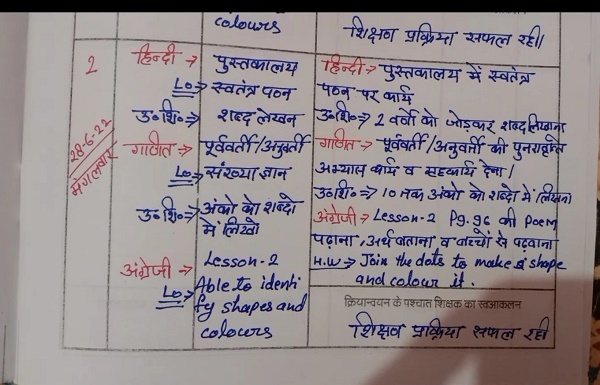 colours
शिक्षण प्रक्रिया सफल रही।
2
28-6-22
मंगलवार
हिन्दी → पुस्तकालय
L.O. ⇒ स्वतंत्र पठन
उ॰शि॰ ⇒ शब्द लेखन
गणित → पूर्ववर्ती/अनुवर्ती
L.O. ⇒ संख्या ज्ञान
उ॰शि॰ ⇒ अंको को शब्दो
में लिखो
अंग्रेजी → Lesson-2
L.O. → Able to identi
fy shapes and
colours
हिन्दी → पुस्तकालय में स्वतंत्र
पठन पर कार्य
उ॰शि॰ ⇒ 2 वर्णो को जोड़कर शब्द लिखना
गणित → पूर्ववर्ती/अनुवर्ती की पुनरावृत्ति
अभ्यास कार्य व सहकार्य देना।
उ॰शि॰ ⇒ 10 तक अंको को शब्दो में लिखना
अंग्रेजी → Lesson-2 Pg.96 की Poem
पढ़ाना, अर्थ बताना व बच्चों से पढ़वाना
H.W → Join the dots to make a shape
and colour it.
क्रियान्वयन के पश्चात शिक्षक का स्वआकलन
शिक्षण प्रक्रिया सफल रही